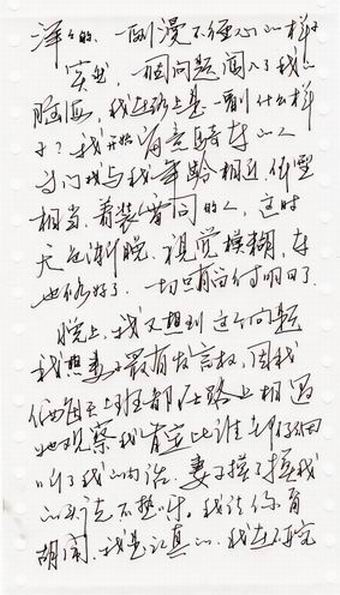 洋洋的、一副漫不经心的样子
突然，一个问题闯入了我的
脑海，我在路上是一副什么样
子？我开始留意骑车的人
专门找与我年龄相近，体型
相当，着装雷同的人，这时
天色渐晚，视觉模糊，车
也修好了，一切只有留待明日了。
晚上，我又想到这个问题
我想妻子最有发言权，因我
俩每天上班都在路上相遇
她观察我肯定比谁都仔细
听了我的内话，妻子摸了摸我
的头说不热呀。我说你别
胡闹，我是认真的，我在研究